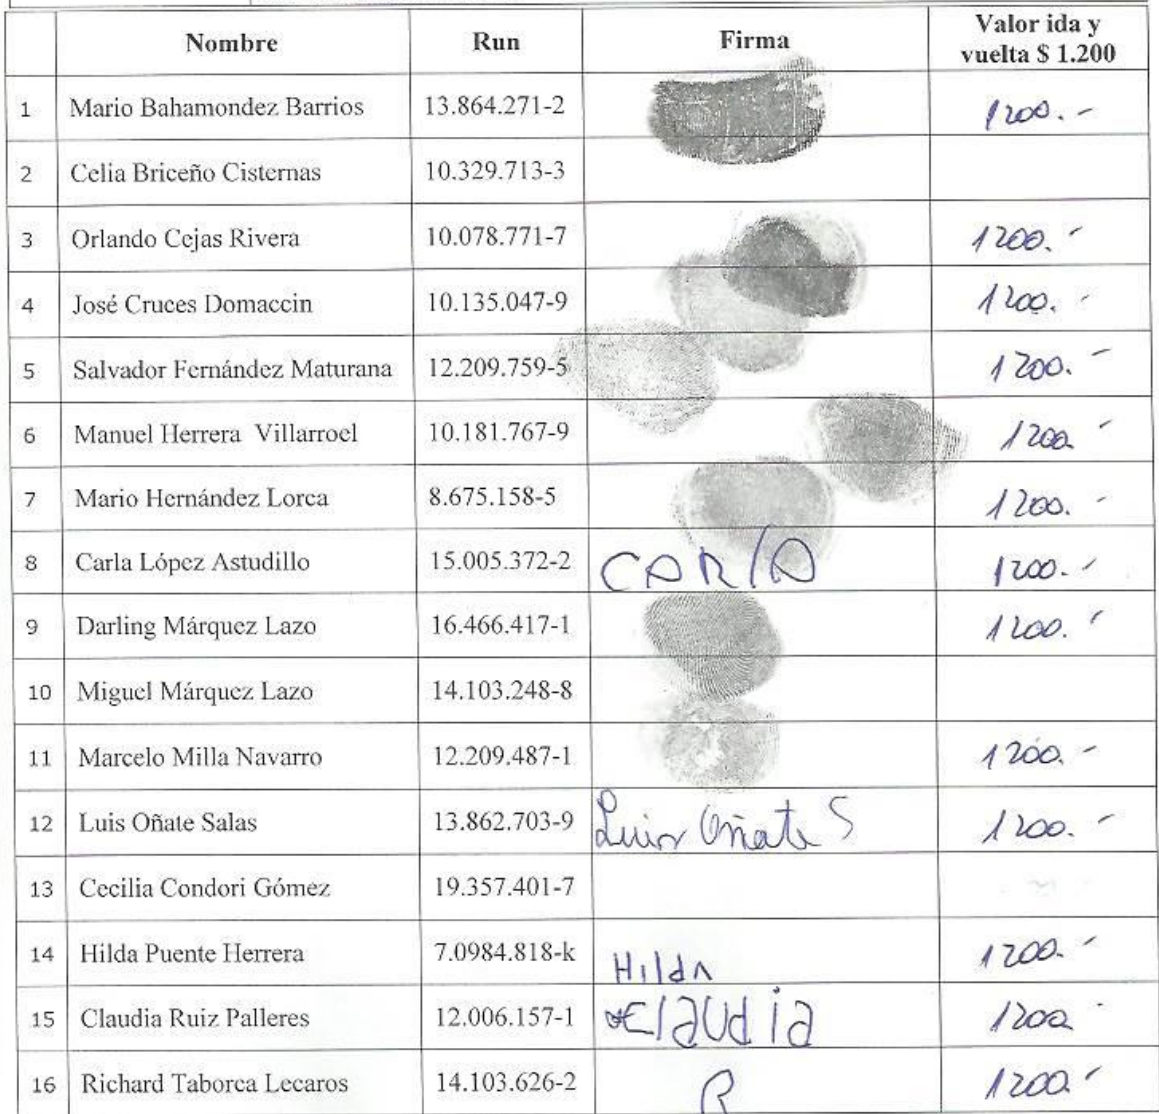 Nombre Run Firma Valor ida y vuelta $ 1.200
1 Mario Bahamondez Barrios 13.864.271-2 1200.-
2 Celia Briceño Cisternas 10.329.713-3
3 Orlando Cejas Rivera 10.078.771-7 1200.-
4 José Cruces Domaccin 10.135.047-9 1200.-
5 Salvador Fernández Maturana 12.209.759-5 1200.-
6 Manuel Herrera Villarroel 10.181.767-9 1200.-
7 Mario Hernández Lorca 8.675.158-5 1200.-
8 Carla López Astudillo 15.005.372-2 CARlA 1200.-
9 Darling Márquez Lazo 16.466.417-1 1200.-
10 Miguel Márquez Lazo 14.103.248-8
11 Marcelo Milla Navarro 12.209.487-1 1200.-
12 Luis Oñate Salas 13.862.703-9 Luis Oñate S 1200.-
13 Cecilia Condori Gómez 19.357.401-7
14 Hilda Puente Herrera 7.0984.818-k HildA 1200.-
15 Claudia Ruiz Palleres 12.006.157-1 Claudia 1200.-
16 Richard Taborca Lecaros 14.103.626-2 R 1200.-